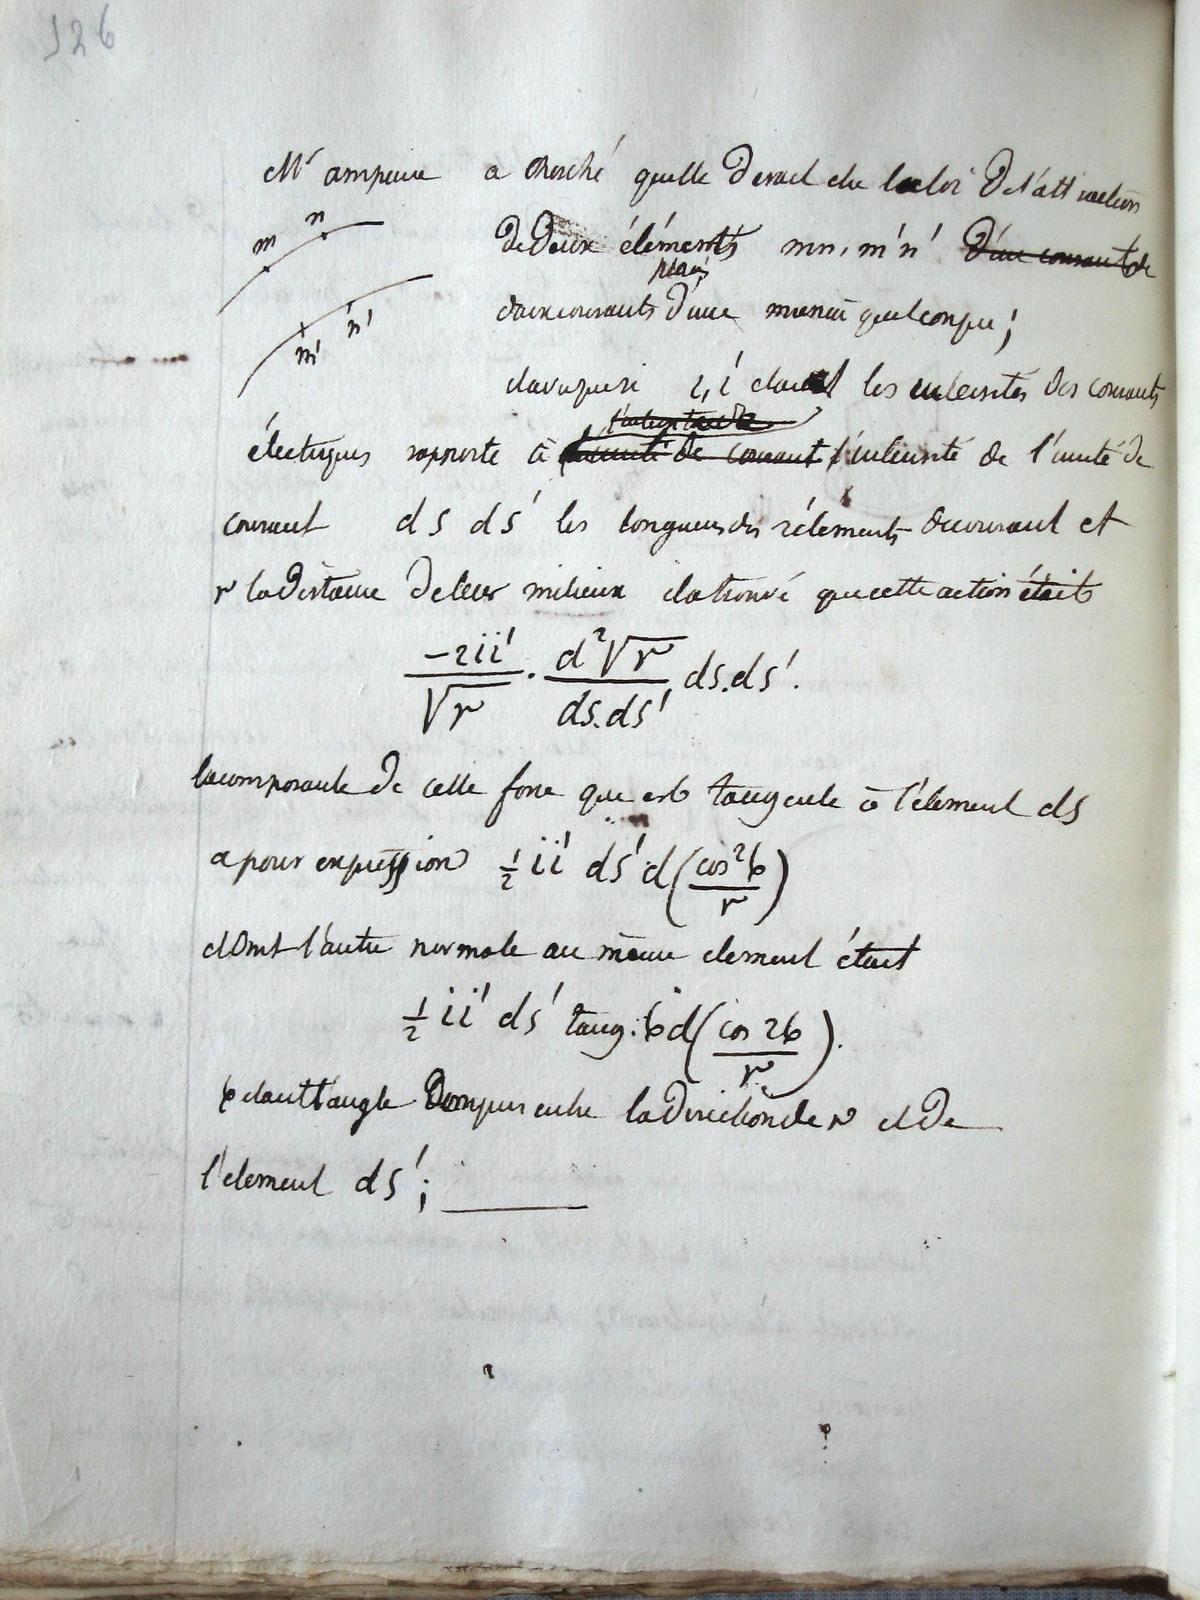 126
Mr ampere a cherché quelle devait être la loi De l'attraction
m n
De Deux éléments mn, m'n' D'un courant de
pris
deux courants D'une maniere quelconque;
m' n'
i, i' étant les intensités Des courants
électriques rapporté à l'unité de courant l'intensité de l'unité De
courant ds ds' les longueurs des élements de courant et
r la Distance De leur milieux il a trouvé que cette action était
-2ii'/√r . d²√r/ds.ds' ds.ds'.
la composante De cette force qui est tangente à l'élement ds
a pour expression ½ ii' ds' d(cos²6/r)
dont l'autre normale au même element était
½ ii' ds' tang. 6 d(cos 26/r).
6 étant l'angle Compris entre la Direction de r et De
l'élement ds';